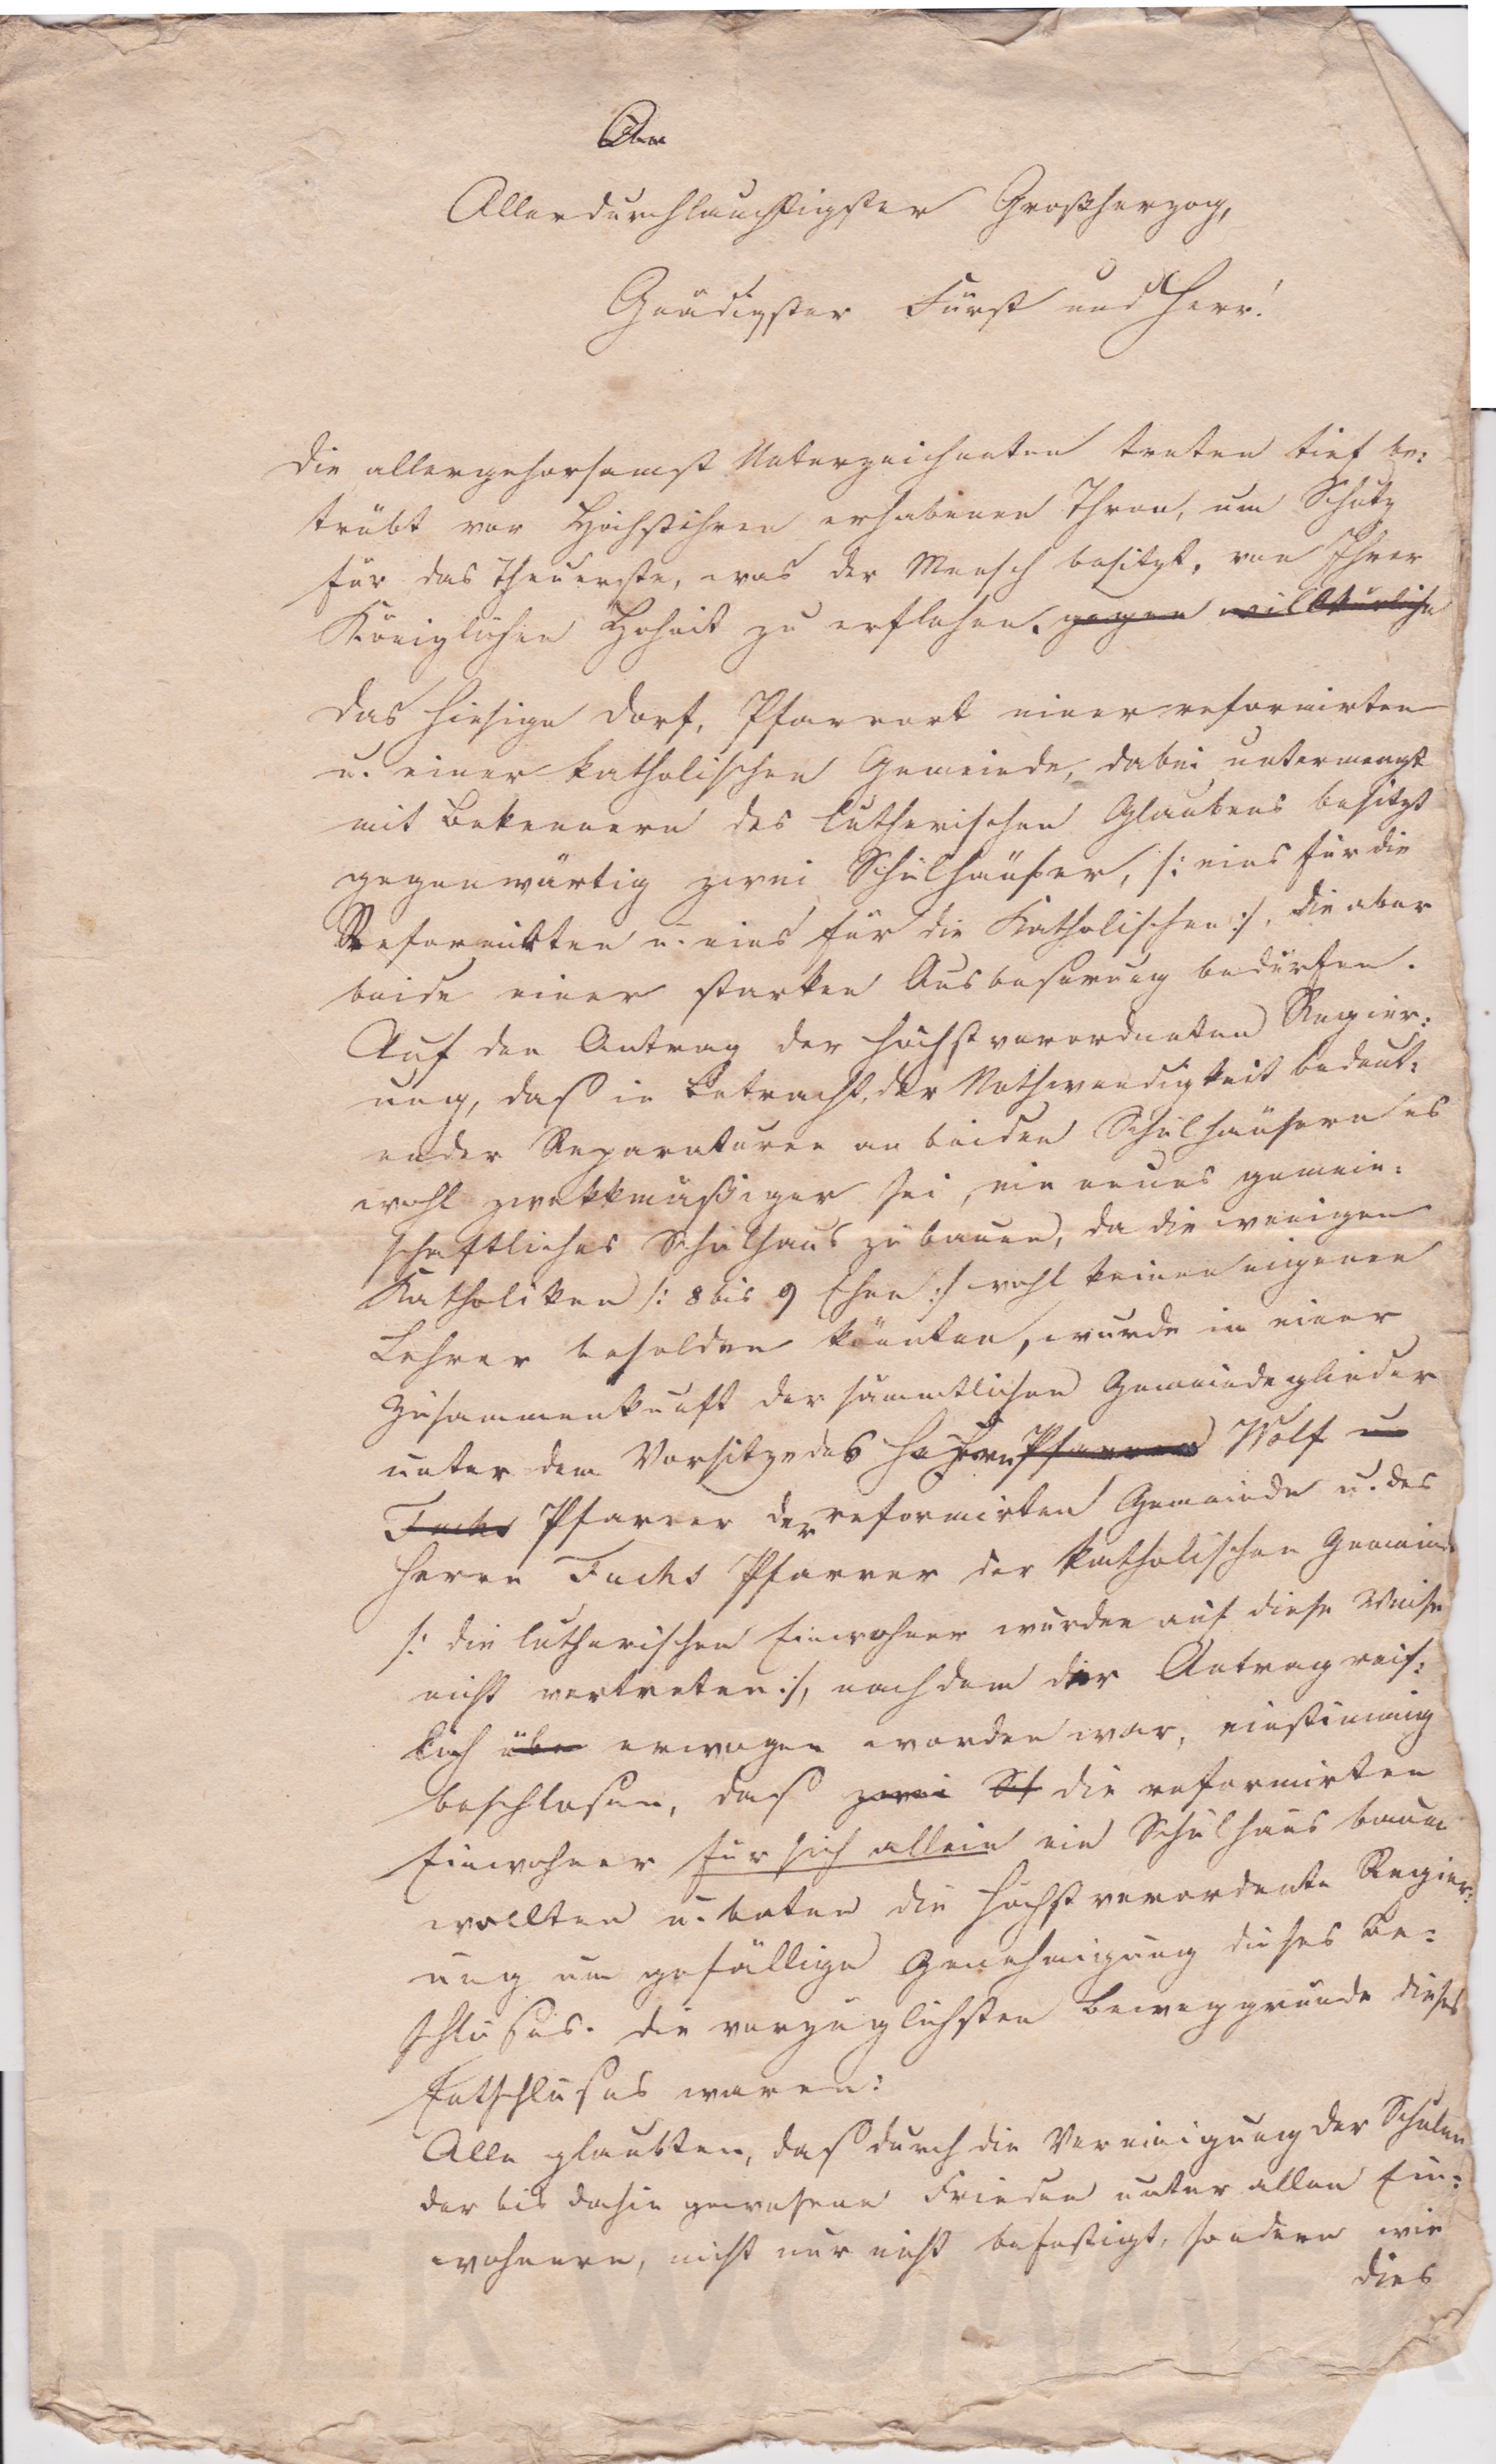 An
Allerdurchlauchtigster Großherzog,
Gnädigster Fürst und Herr!
Die allergehorsamst Unterzeichneten treten tief be:
trübt vor Höchstihren erhabenen Thron, um Schutz
für das Theuerste, was der Mensch besitzt, von Ihrer
Königlichen Hoheit zu erflehen. gegen willkürliche
Das hiesige Dorf, Pfarrort einer reformirten
u. einer katholischen Gemeinde, dabei untermengt
mit Bekennern des lutherischen Glaubens besitzt
gegenwärtig zwei Schulhäußer, /: eins für die
Reformirten u. eins für die Katholischen :/, die aber
beide einer starken Ausbeserung bedürfen.
Auf den Antrag der höchstverordneten Regier:
ung, daß in Betracht der Nothwendigkeit bedeut:
ender Reparaturen an beiden Schulhäusern es
wohl zwekkmäßiger sei, ein neues gemein:
schaftliches Schulhaus zu bauen, da die wenigen
Katholiken /: 8 bis 9 Ehen :/ wohl keinen eigenen
Lehrer besolden könnten, wurde in einer
Zusammenkunft der sämmtlichen Gemeindeglieder
unter dem Vorsitze des Herrn Pfarrers Wolf u
Fuchs Pfarrer der reformirten Gemeinde u. des
Herrn Fuchs Pfarrer der katholischen Gemeinde
/: die lutherischen Einwohner wurden auf diese Weise
nicht vertreten :/, nachdem der Antrag reif:
lich übe erwogen worden war, einstimmig
beschlosen, daß zwei Sch die reformirten
Einwohner für sich allein ein Schulhaus bauen
wollten u. baten die höchstverordente Regier:
ung um gefällige Genehmigung dieses Be:
schluses. Die vorzüglichsten Beweggründe dieses
Entschluses waren:
Alle glaubten, daß durch die Vereinigung der Schulen
der bis dahin gewesene Frieden unter allen Ein:
wohnern, nicht nur nicht befestigt, sondern wie
dies